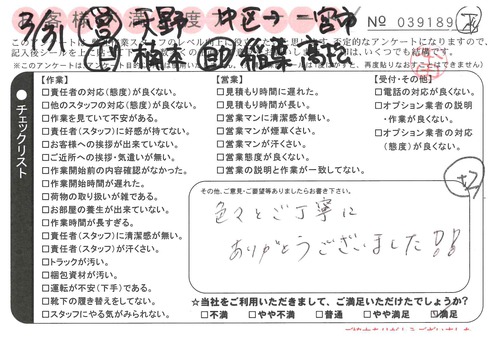 3/31 営 天野 中区→一宮市
No 039189
このア
記入後シールを上に
、いくつでも結構です。
※このアンケートは
再度貼りなおすことはできません)
チェックリスト
【作業】
□責任者の対応(態度)が良くない。
□他のスタッフの対応(態度)が良くない。
□作業を見ていて不安がある。
□責任者(スタッフ)に好感が持てない。
□お客様への挨拶が出来ていない。
□ご近所への挨拶・気遣いが無い。
□作業開始前の内容確認がなかった。
□作業開始時間が遅れた。
□荷物の取り扱いが雑である。
□お部屋の養生が出来ていない。
□作業時間が長すぎる。
□責任者(スタッフ)に清潔感が無い。
□責任者(スタッフ)が汗くさい。
□トラックが汚い。
□梱包資材が汚い。
□運転が不安(下手)である。
□靴下の履き替えをしてない。
□スタッフにやる気がみられない。
【営業】
□見積もり時間に遅れた。
□見積もり時間が長い。
□営業マンに清潔感が無い。
□営業マンが煙草くさい。
□営業マンが汗くさい。
□営業態度が良くない。
□営業の説明と作業が一致してない。
【受付・その他】
□電話の対応が良くない。
□オプション業者の説明
・作業が良くない。
□オプション業者の対応
(態度)が良くない。
その他、ご意見・ご要望等ありましたらお書き下さい。
色々とご丁寧に
ありがとうございました!!
☆当社をご利用いただきまして、ご満足いただけたでしょうか?
□不満 □やや不満 □普通 □やや満足 ☑満足